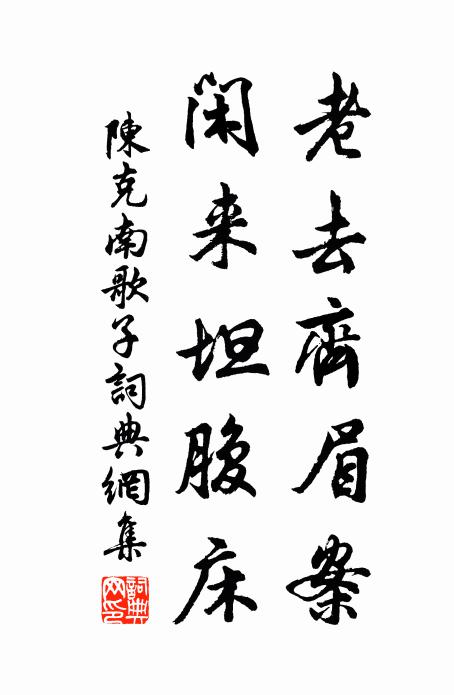 老去齊眉案
閑来坦腹床
陳克南歌子詞典網集
詞典网印